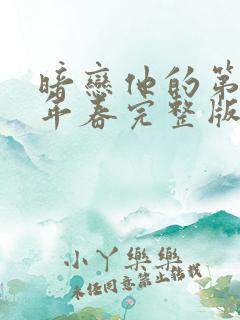 暗戀他的第
年春完整版
小丫樂樂
未经同意禁止转载